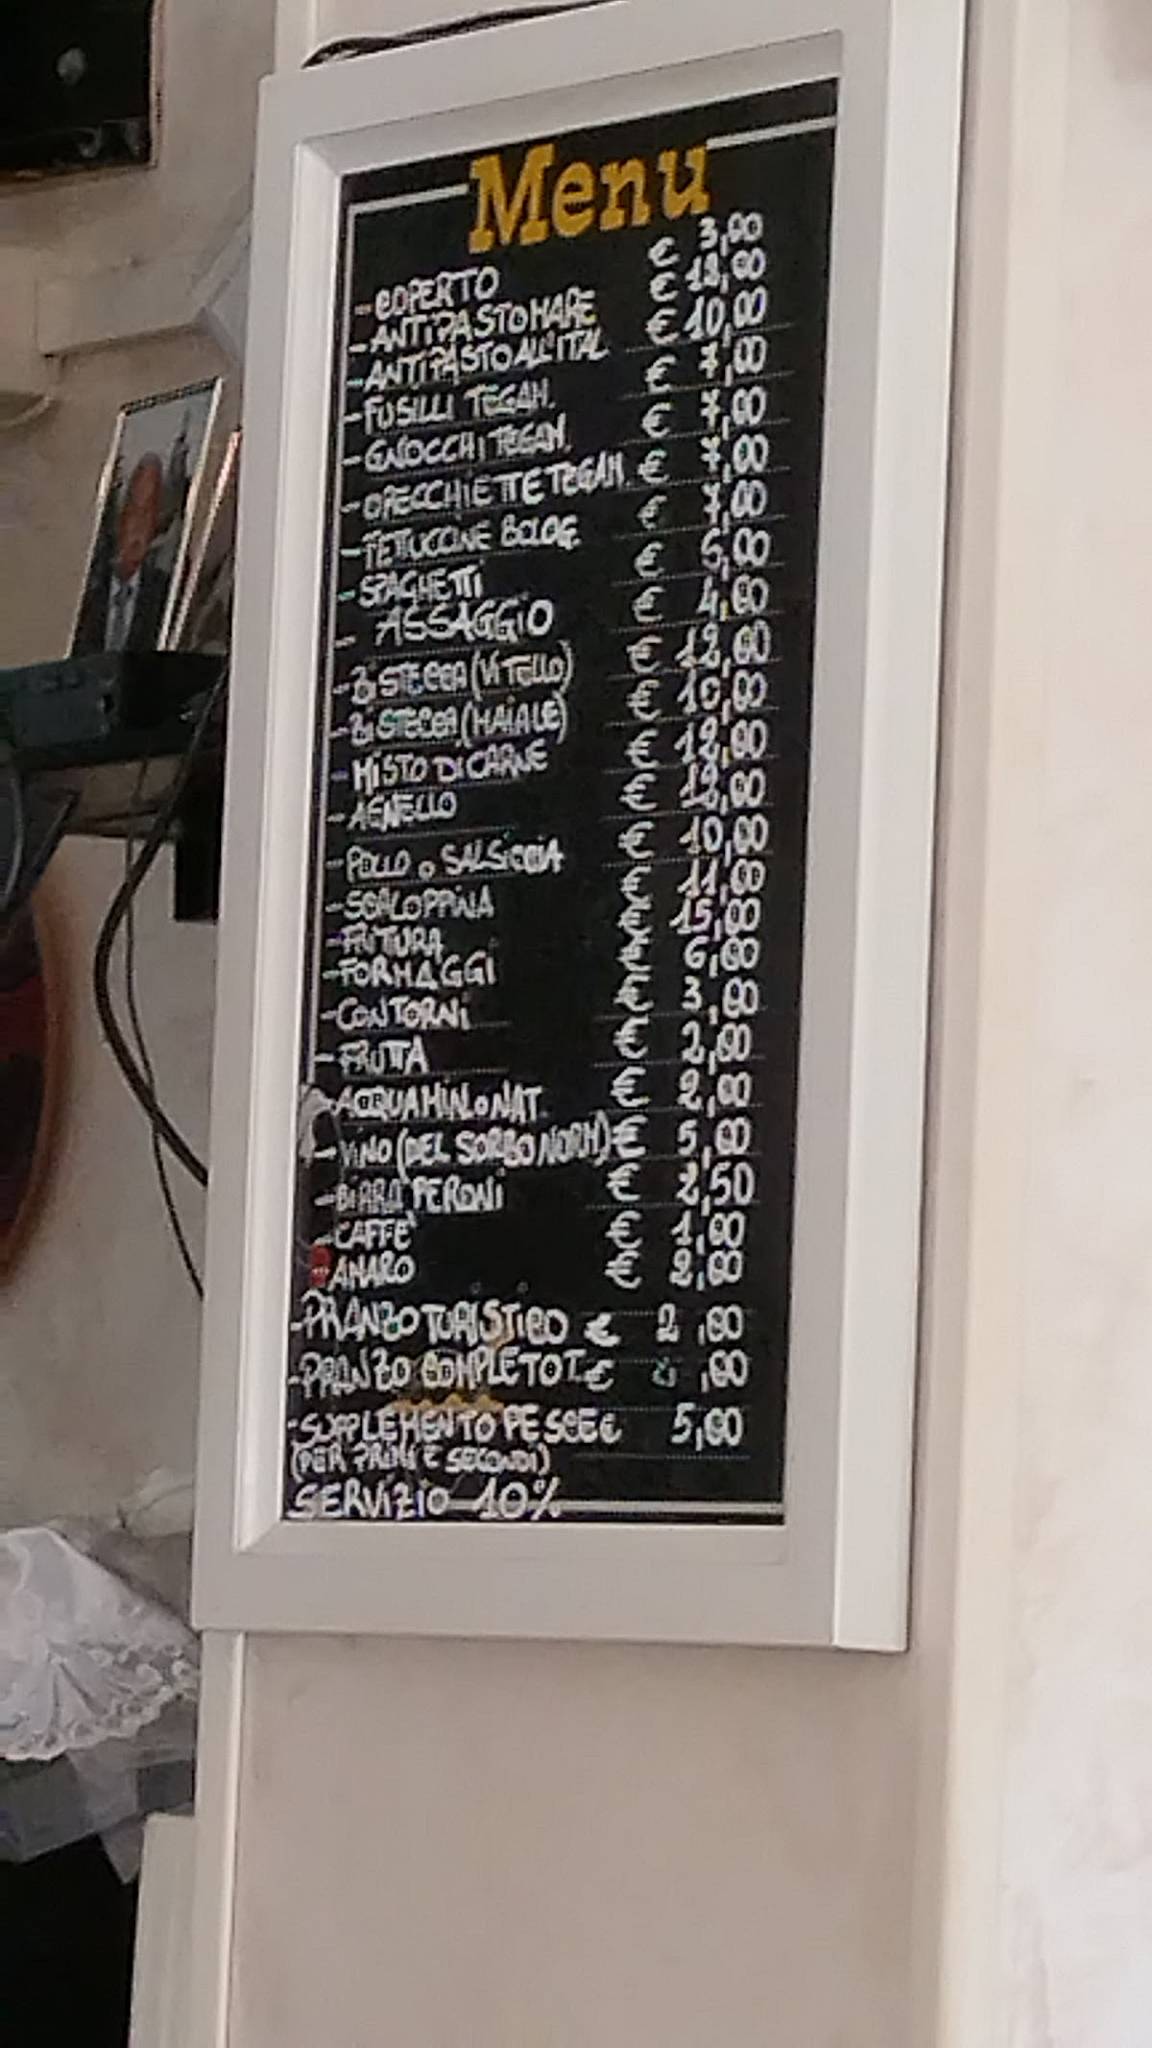 Menu
- COPERTO € 3,00
- ANTIPASTO MARE € 12,00
- ANTIPASTO ALL'ITAL € 10,00
- FUSILLI TEGAM. € 7,00
- GNOCCHI TEGAM. € 7,00
- ORECCHIETTE TEGAM. € 7,00
- FETTUCCINE BOLOG. € 7,00
- SPAGHETTI €
- ASSAGGIO € 4,00
- BISTECCA (VITELLO) € 12,00
- BISTECCA (MAIALE) € 10,00
- MISTO DI CARNE € 12,00
- AGNELLO € 12,00
- POLLO O SALSICCIA € 10,00
- SCALOPPINA € 11,00
- FRITTURA € 15,00
- FORMAGGI € 6,00
- CONTORNI € 3,00
- FRUTTA € 2,00
- ACQUA MIN. O NAT. € 2,00
- VINO (DEL SORBO NORM) € 5,00
- BIRRA PERONI € 2,50
- CAFFE' € 1,00
AMARO € 2,00
- PRANZO TURISTICO €
- PRANZO COMPLETO T. €
- SUPPLEMENTO PESCE € 5,00
(PER PRIMI E SECONDI)
SERVIZIO 10%